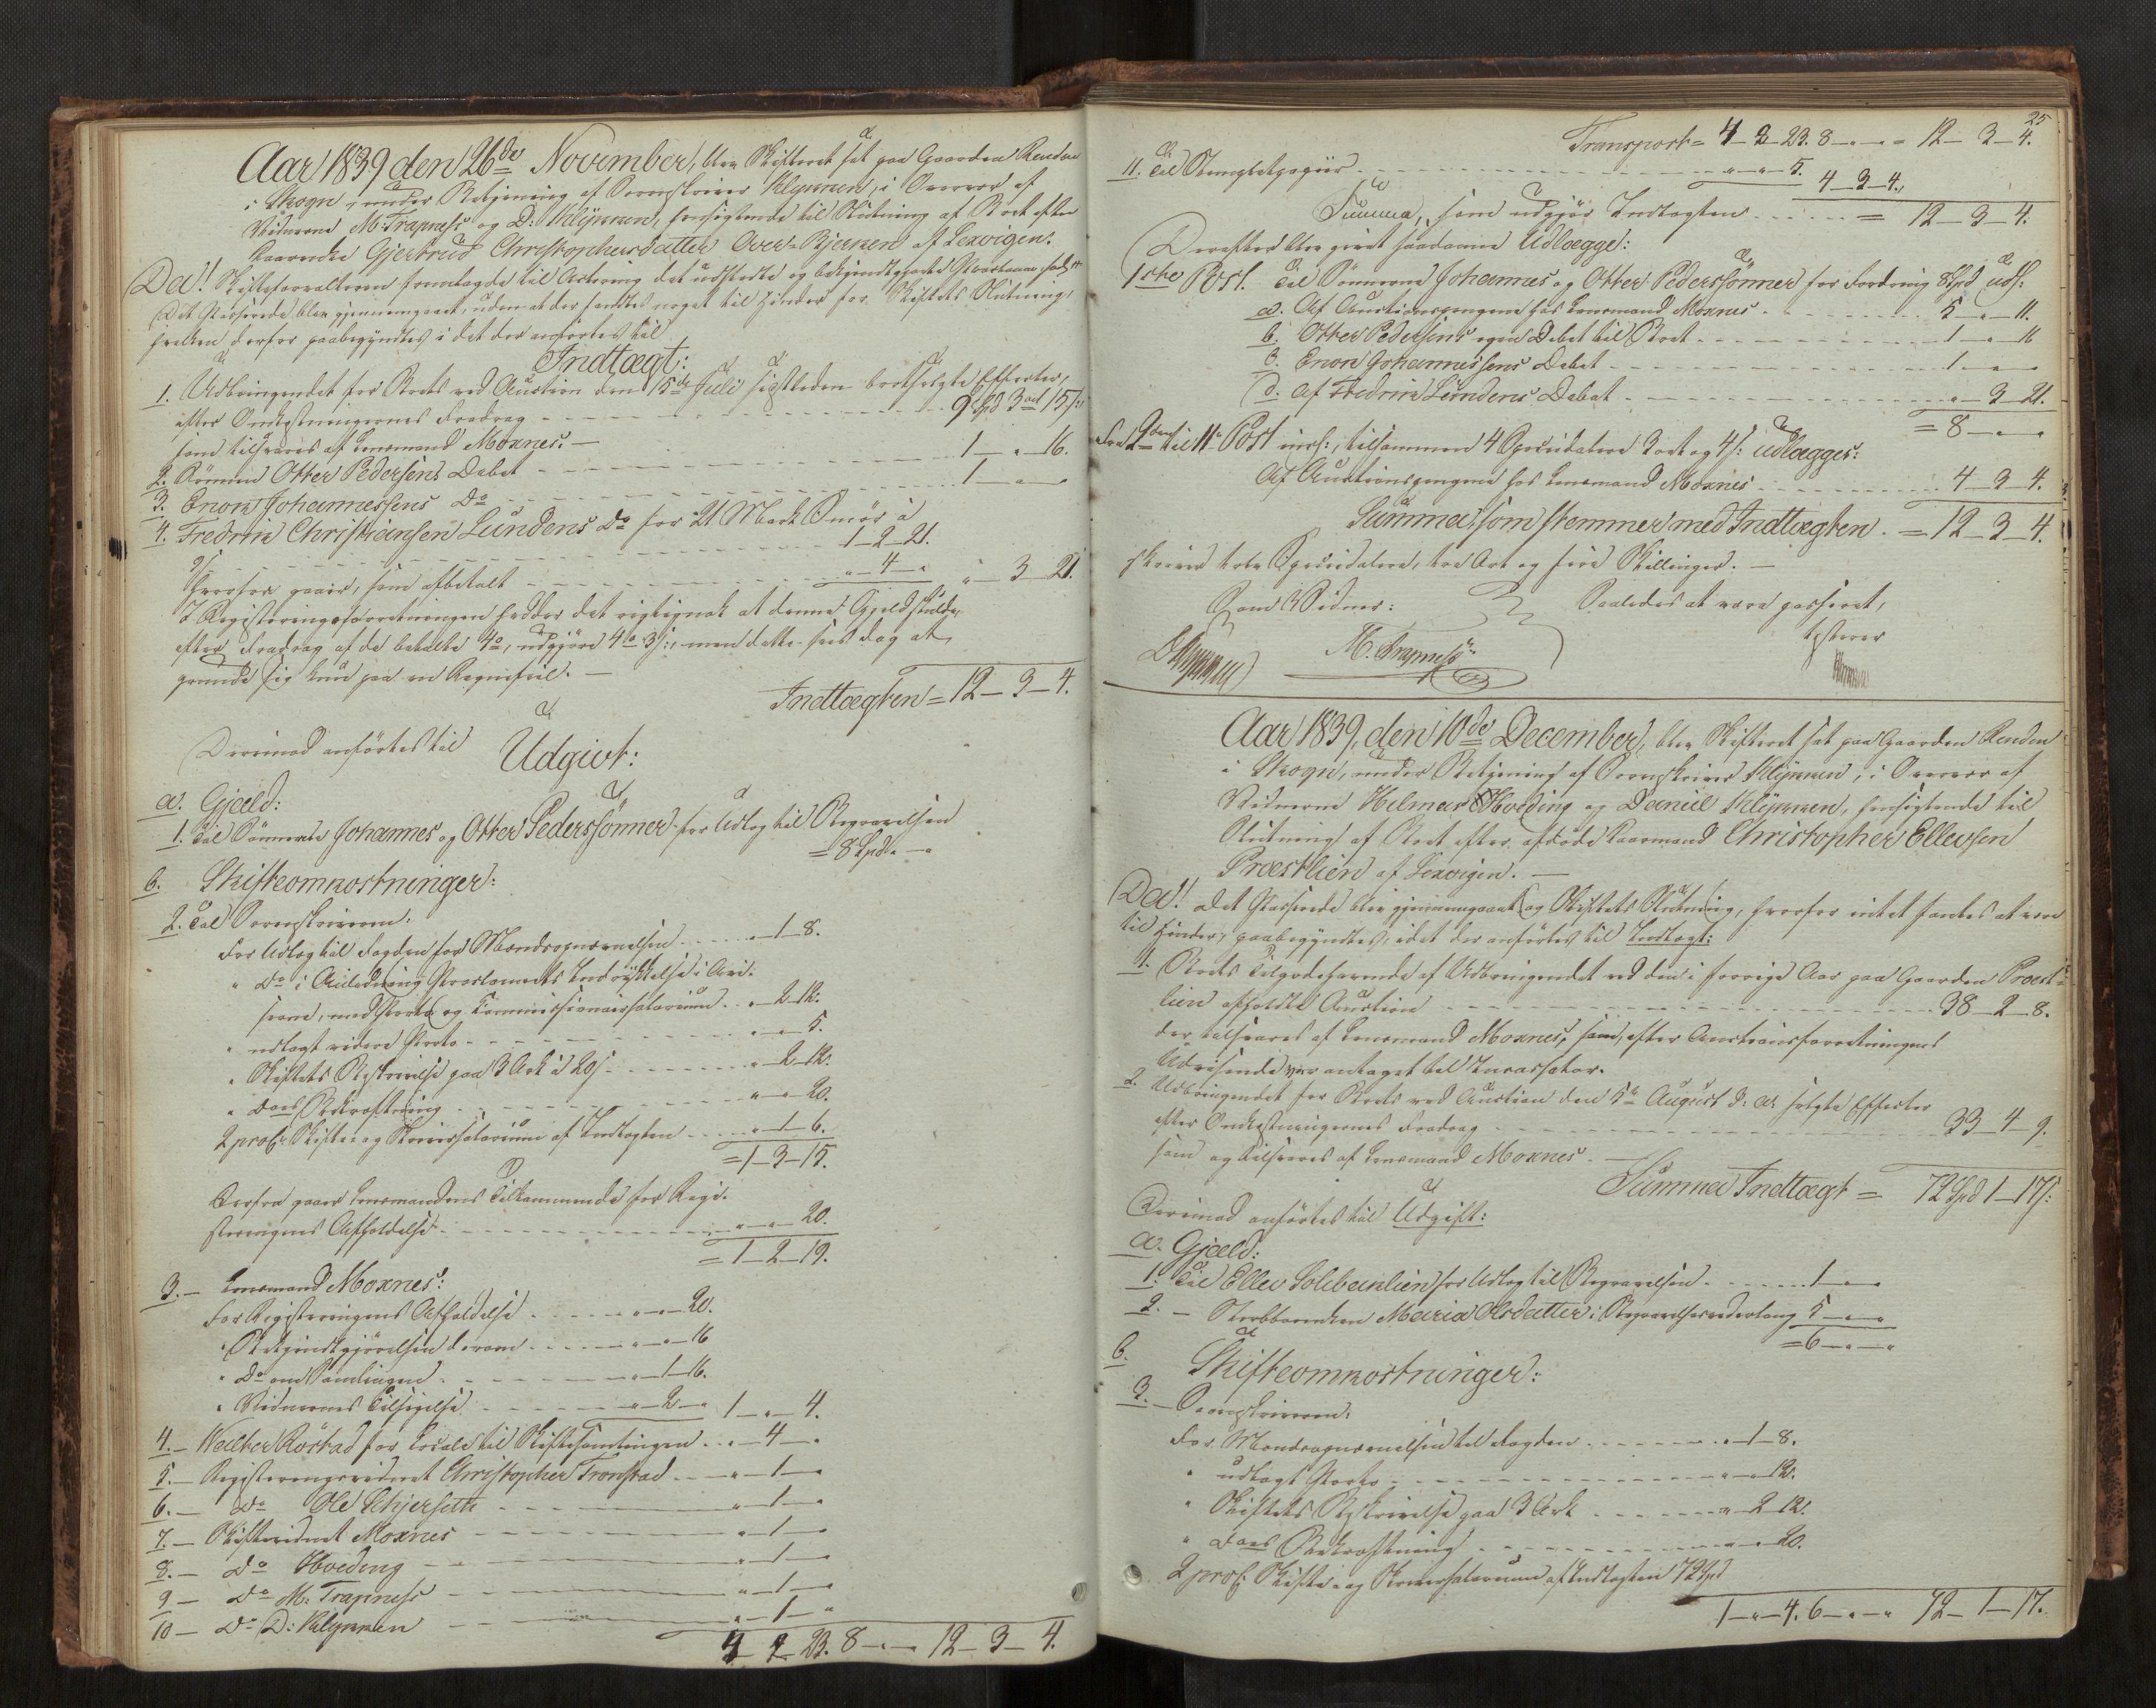 Aar 1839 den 26de November, blev Skifteret sat paa Gaarden Renden
i Skogn, under Betjening af Sorenskriver Klÿwen, i Overvær af
Vidnerne M. Trapness og D: Klÿwen, hensigtende til Slutning af Boet efter
Kaarenke Gjertrud Christophersdatter Over-Bjerken af Lexvigen.
Da! Skifteforvalteren fremlagde til Actering det udstedte og bekjendtgjorte Proclama
Det Passerede blev gjennemgaaet, uden at der fandtes noget til Hinder for Skiftets Slutning,
hvilken derfor paabegyndtes i det der anførtes til
Indtægt:
1. Udbringendet for Boets ved Auction den 15de Juli sidstleden bortsolgte Effecter,
efter Omkostningernes Fradrag - - - 9 Spd 3 ort 15 s:
som tilsvares af Lensmand Moxnes. —
2. Sønnen Otter Pedersens Debet - - - 1 - " - 16.
3. Enon Johannessens Do - - - 1 - " - "
4. Fredrik Christiansen Lundens Do for 21 Mark Smør à
9 s - - - 1 - 2 - 21.
Hvorfor gaaer, som afbetalt - - - " - 4 - " " - 3 - 21.
I Registreringsforretningen hedder det rigtignok at denne Gjeld skulde,
efter Fradrag af de betalte 4 o, udgjøre 4 o 3 s:, men dette sees dog at
grunde sig kun paa en Regnefeil. —
Indtægten = 12 - 3 - 4.
Derimod anførtes til
Udgivt:
a. Gjæld:
1. Til Sønnerne Johannes og Otter Pederssønner for Udlæg til Begravelsen
= 8 Spd " - "
b. Skifteomkostninger:
2. Til Sorenskriveren:
For Udlæg til Fogden for Mandsopnævnelsen . . . " - 1 - 8.
" Do i Anledning Proclamets Indrykkelse i Avi-
serne, med Porto og Commissionairsalarium . . " - 2 - 12.
" udlagt videre Porto - - - " - " - 5.
" Skiftets Beskrivelse paa 3 Ark à 20 s - - " - 2 - 12.
" Dets Bekræftning - - - " - " - 20.
2 proC: Skifte- og Skriversalarium af Indtægten . . . " - 1 - 6.
= 1 - 3 - 15.
Derfra gaaer Lensmandens Tilkommende for Regi-
streringens Afholdelse - - - " - " - 20.
= 1 - 2 - 19.
3. - Lensmand Moxnes:
For Registreringens Afholdelse . . . " - " - 20.
" Bekjendtgjørelsen derom . . . " - " - 16
" Do om Samlingen . - - - " - 1 - 16.
" Vidnernes Tilsigelse - - - " - 2 - " 1 - " - 4.
4. - Walther Røstad for Locale til Skiftesamlingen . . " - 4 - "
5. - Registreringsvidnet Christopher Tronstad - - " - 1 - "
6. - Do Ole Schjerseth - - - " - 1 - "
7. - Skiftevidnet Moxnes - - - " - 1 - "
8. - Do Hveding - - - " - 1 - "
9 - Do M: Trapness - - - " - 1 - "
10 - Do D: Klÿwen - - - " - 1 - "
4 - 2 - 23. 8 - " - " 12 - 3 - 4.
25
Transport = 4 - 2 - 23. 8 - " - " = 12 - 3 - 4.
11. Til Stempletpapiir - - - " - " - 5. 4 - 3 - 4.
Summa, som udgjør Indtægten . . . = 12 - 3 - 4.
Derefter blev gjort saadanne Udlægge:
1ste Post. Til Sønnerne Johannes og Otter Pederssønner for Fordring 8 Spd udl:
a. Af Auctionspengene hos Lensmand Moxnes . . . 5 - " - 11.
b. Otter Pedersens egen Debet til Boet - - - 1 - " - 16
c. Enon Johannessens Debet - - - 1 - " - "
d. Af Fredrik Lundens Debet - - - " - 3 - 21.
= 8 - " - "
Fra 2den til 11te Post incl:, tilsammen 4 Speciedalere 3 ort og 4 s: udlægges:
Af Auctionspengene hos Lensmand Moxnes . . . 4 - 3 - 4.
Summa som stemmer med Indtægten . = 12 - 3 - 4.
skriver tolv Speciedalere, tre Ort og fire Skillinger. —
Som Vidner: Saaledes at være passeret,
testerer
DKlÿwen M. Trapness Klÿwen
Aar 1839, den 10de December, blev Skifteret sat paa Gaarden Renden
i Skogn, under Betjening af Sorenskriver Klÿwen, i Overvær af
Vidnerne Hilmar Hveding og Daniel Klÿwen, hensigtende til
Slutning af Boet efter afdøde Kaarmand Christopher Ellevsen
Præstlien af Lexvigen. —
Da! Det Passerede blev gjennemgaaet og Skiftets Slutning, hvorfor intet fandtes at være
til Hinder, paabegyndtes, idet der anførtes til Indtægt:
1. Boets Tilgodehavende af Udbringendet ved den i forrige Aar paa Gaarden Præst-
lien afholdte Auction - - - 38 - 2 - 8.
der tilsvares af Lensmand Moxnes, som, efter Auctionsforretningens
Udvisende, var antaget til Incassator.
2. Udbringendet for Boets ved Auction den 5te August d: A: solgte Effecter
efter Omkostningernes Fradrag - - - 33 - 4 - 9.
som og tilsvares af Lensmand Moxnes. —
Summa Indtægt = 72 Spd 1 - 17 s:
Derimod anførtes til Udgift:
a. Gjæld:
1. Til Ellev Solibeiklien for Udlæg til Begravelsen . . . . 1 - " - "
2. - Sterbboenken Maria Olsdatter i Begravelsesvederlag 5 - " - "
= 6 - " - "
b. Skifteomkostninger:
3. - Sorenskriveren:
For Mandsopnævnelsen til Fogden . . . " - 1 - 8.
" udlagt Porto - - - " - " - 12.
" Skiftets Beskrivelse paa 3 Ark . . . " - 2 - 12.
" Dets Bekræftning . - - - " - " - 20.
2 proC: Skifte- og Skriversalarium af Indtægten 72 Spd
1 - " - 4. 6 - " - " 72 - 1 - 17.